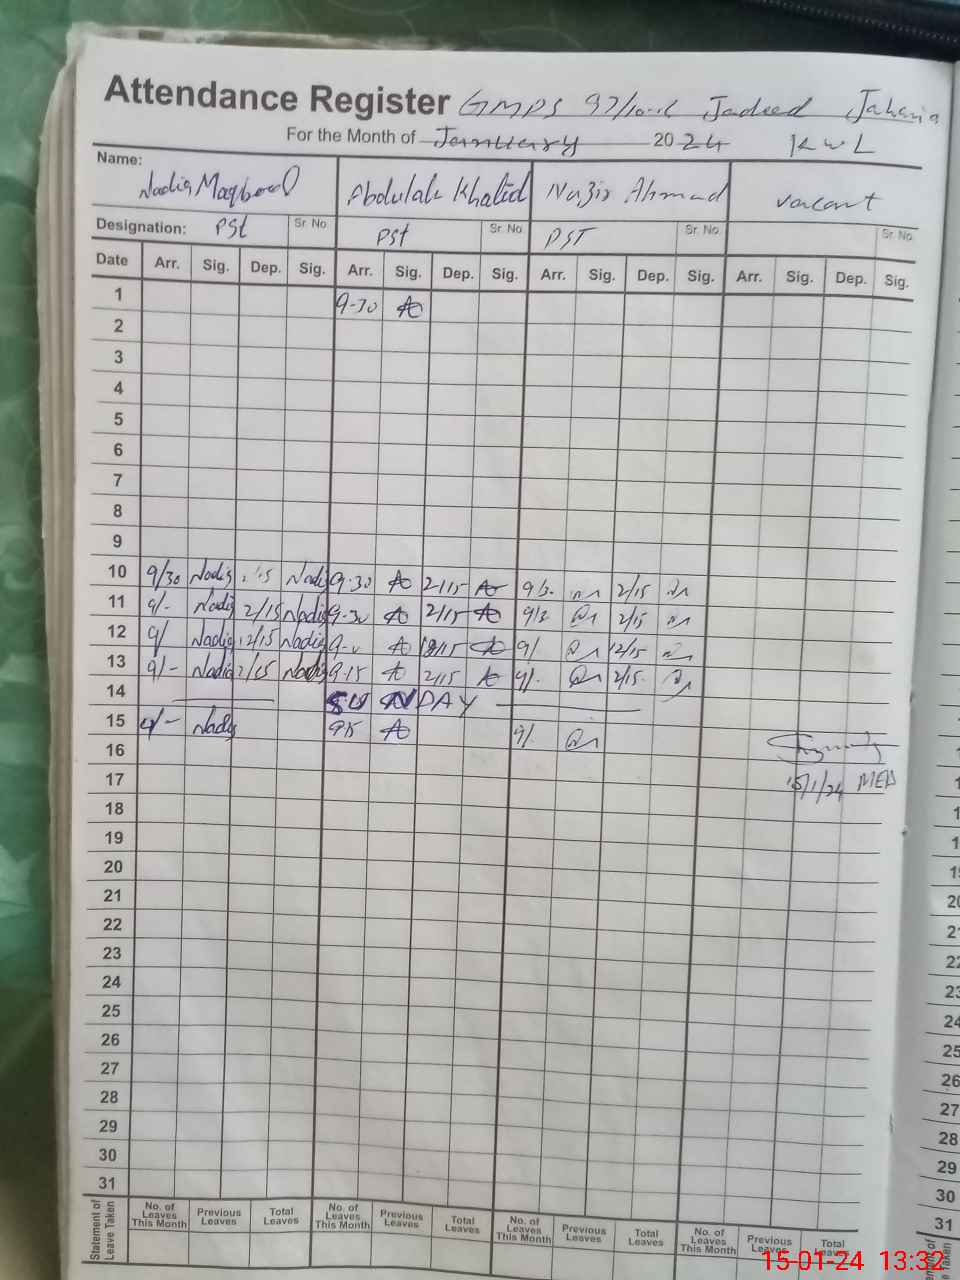 Attendance Register GMPS 97/10-R Jadeed Jahania
For the Month of January 2024 KWL
Name: Nadia Maqbool Abdulah Khalid Nazir Ahmad vacant
Designation: PSt Sr. No. PSt Sr. No. PST Sr. No. Sr. No.
Date Arr. Sig. Dep. Sig. Arr. Sig. Dep. Sig. Arr. Sig. Dep. Sig. Arr. Sig. Dep. Sig.
1 9-30
2
3
4
5
6
7
8
9
10 9/30 Nadia Nadia 9-30 2/15 9/3. 2/15
11 9/- Nadia 2/15 Nadia 9-30 2/15 9/3 2/15
12 9/ Nadia 12/15 Nadia 12/15 9/. 12/15
13 9/- Nadia 2/15 Nadia 9-15 2/15 9/. 2/15
14 SUNDAY
15 9/- Nadia 915 9/.
16
17 15/1/24 MEA
18
19
20
21
22
23
24
25
26
27
28
29
30
31
Statement of Leave Taken
No. of Leaves This Month Previous Leaves Total Leaves No. of Leaves This Month Previous Leaves Total Leaves No. of Leaves This Month Previous Leaves Total Leaves No. of Leaves This Month Previous Leaves Total Leaves
15-01-24 13:32